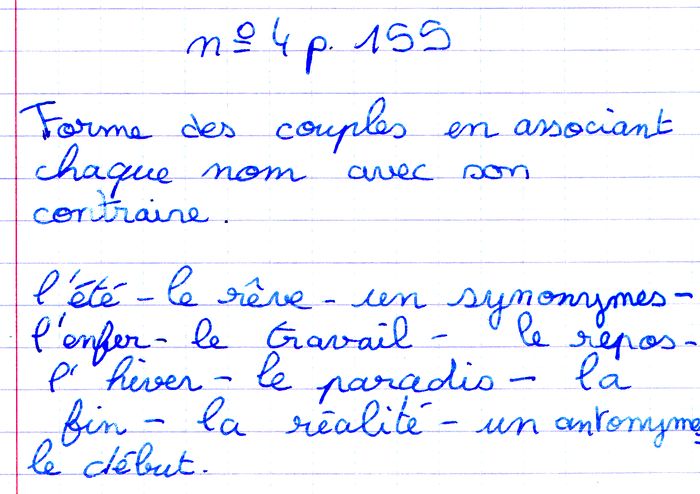 nº 4 p. 155
Forme des couples en associant
chaque nom avec son
contraire.
l'été - le rêve - un synonymes -
l'enfer - le travail - le repos -
l'hiver - le paradis - la
fin - la réalité - un antonyme
le début.